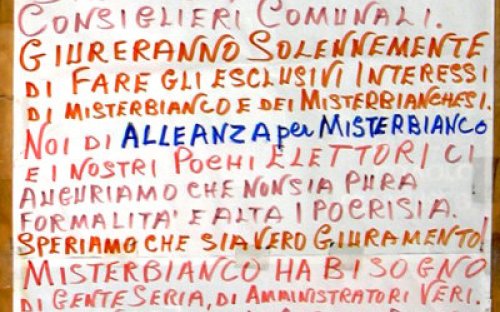 CONSIGLIERI COMUNALI.
GIURERANNO SOLENNEMENTE
DI FARE GLI ESCLUSIVI INTERESSI
DI MISTERBIANCO E DEI MISTERBIANCHESI.
NOI DI ALLEANZA per MISTERBIANCO
E I NOSTRI POCHI ELETTORI CI
AUGURIAMO CHE NON SIA PURA
FORMALITA' E ALTA IPOCRISIA.
SPERIAMO CHE SIA VERO GIURAMENTO!
MISTERBIANCO HA BISOGNO
DI GENTE SERIA, DI AMMINISTRATORI VERI.